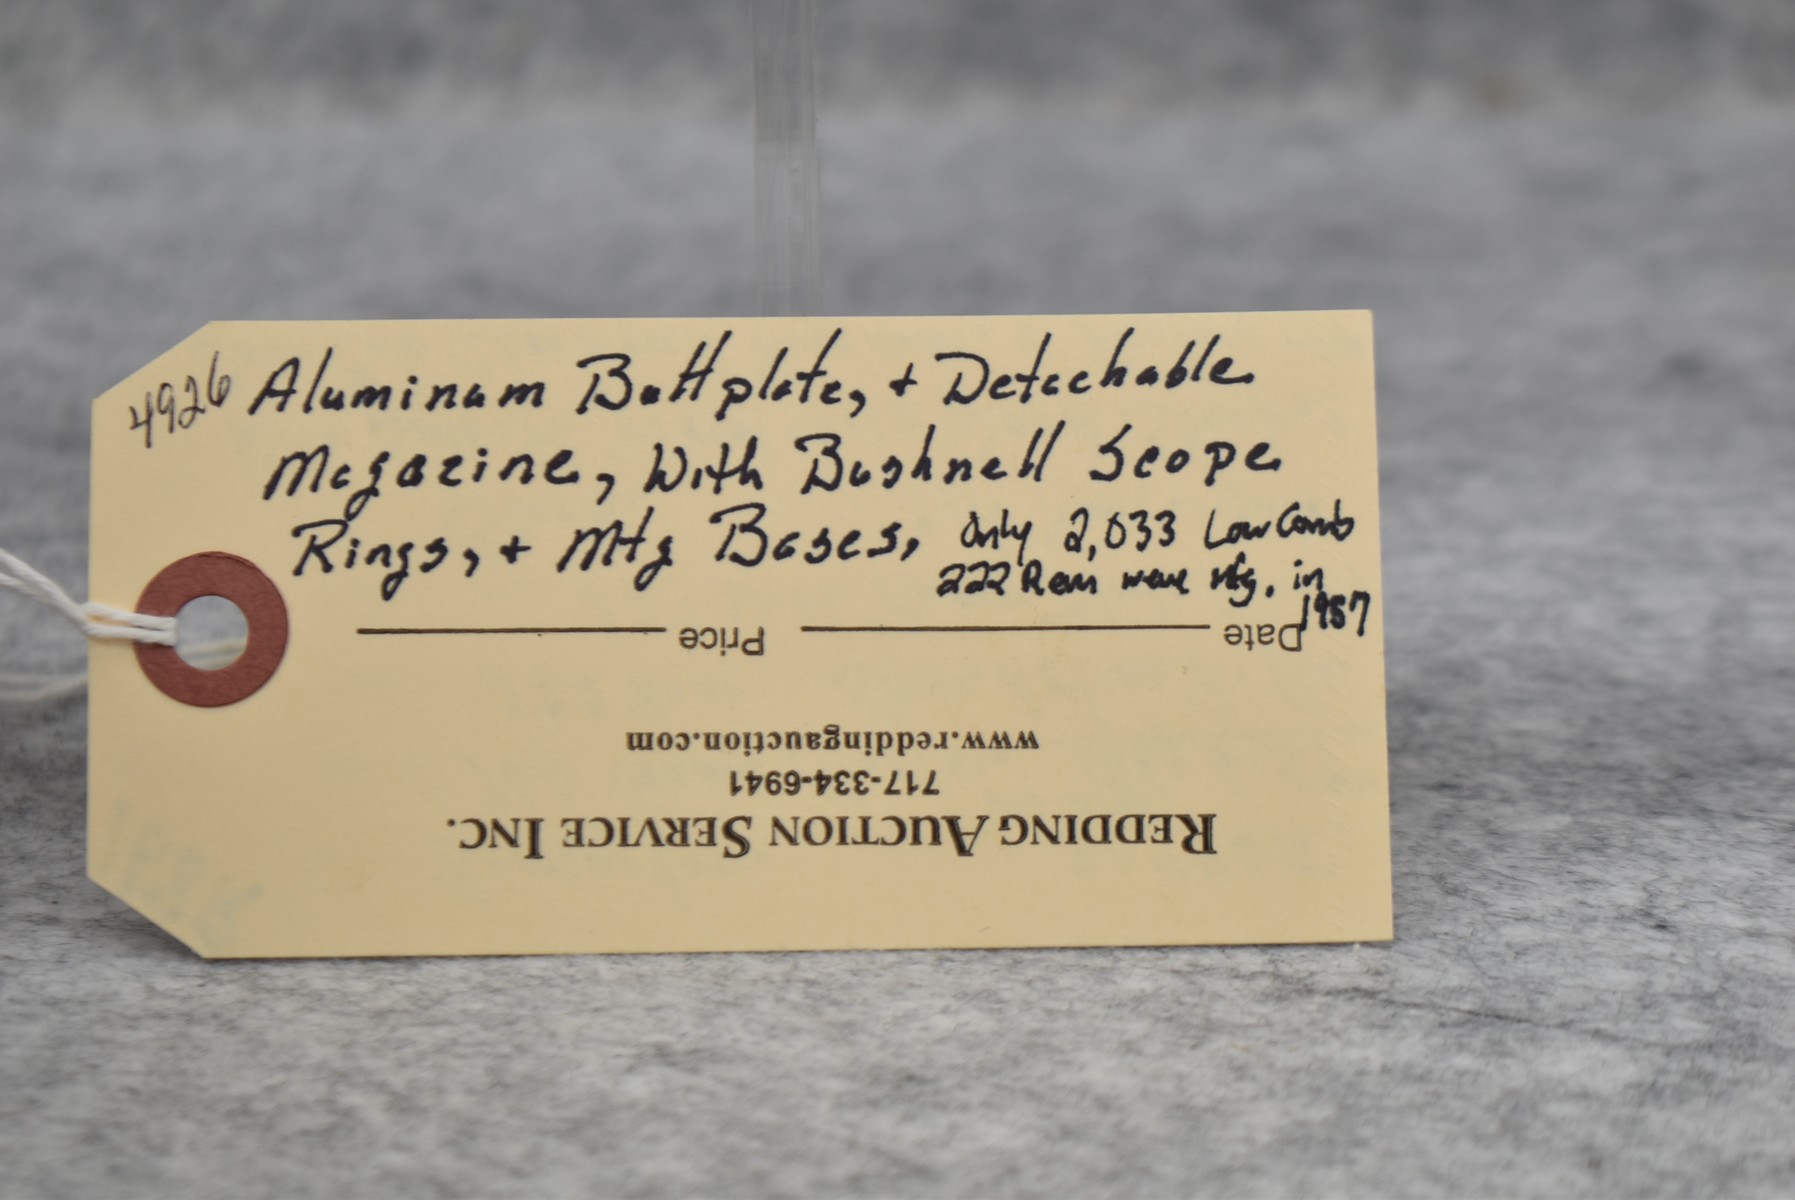 4926 Aluminum Buttplate, + Detachable
Magazine, With Bushnell Scope
Rings, + Mtg Bases, Only 2,033 Low Comb
222 Rem were mfg. in
1957
Date Price
REDDING AUCTION SERVICE INC.
717-334-6941
www.reddingauction.com